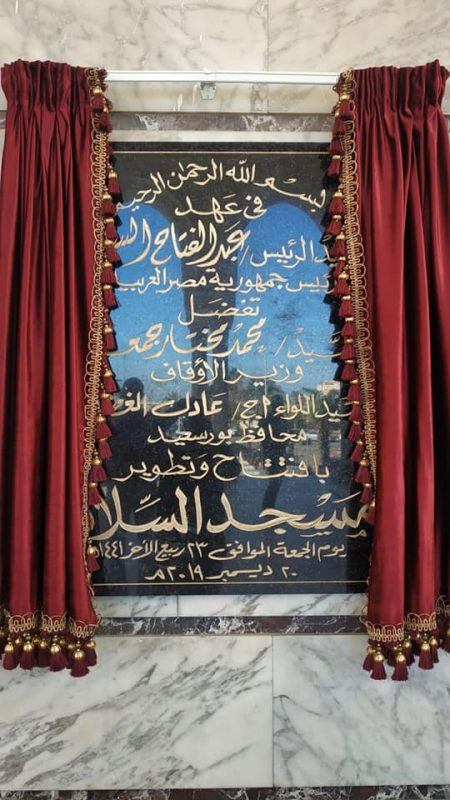 بسم الله الرحمن الرحيم
في عهد
الرئيس / عبد الفتاح
جمهورية مصر العربية
تفضل
السيد / محمد مختار جمعة
وزير الأوقاف
اللواء أ.ح / عادل
محافظ بورسعيد
بافتتاح وتطوير
مسجد السلام
يوم الجمعة الموافق ٢٣ ربيع الآخر ١٤٤١
٢٠ ديسمبر ٢٠١٩م